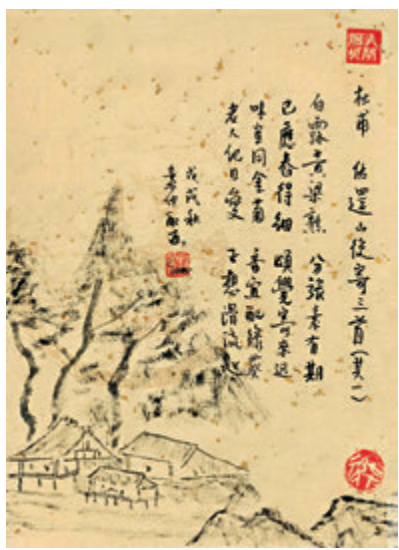 杜甫 佐還山後寄三首(其一)
白露黄粱熟 分張素有期
已應舂得細 頗覺寄來遲
味豈同金菊 香宜配綠葵
老人他日愛 正想滑流匙
戊戌秋